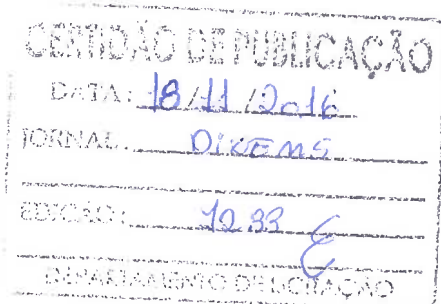 CERTIDÃO DE PUBLICAÇÃO
DATA: 18/11/2016
JORNAL:
EDIÇÃO: 1233
DEPARTAMENTO DE LICITAÇÃO